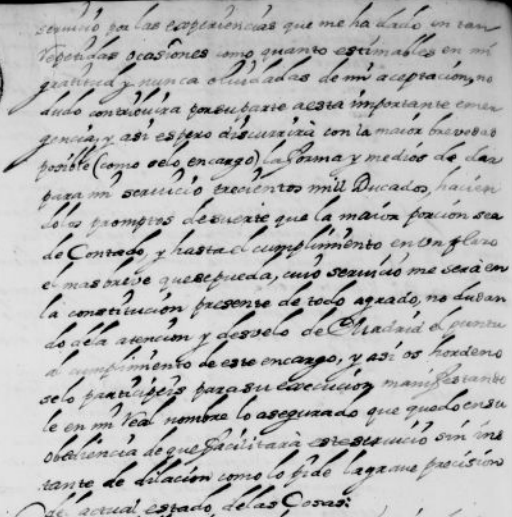 servicio por las experiencias que me ha dado en tan
repetidas ocasiones como quanto estimables en mi
gratitud y nunca oluidadas de mi aceptacion, no
dudo contribuira por su parte a esta importante emer
gencia, y asi espero discurrirà con la maior brevedad
posible (como se lo encargo) la forma y medios de dar
para mi servicio trecientos mill Ducados, hacien
dolos promptos de suerte que la maior porcion sea
de Contado, y hasta el cumplimiento en un plazo
el mas breve que se pueda, cuio servicio me serà en
la constitucion presente de todo agrado, no dudan
do de la atencion y desvelo de Madrid el puntu
al cumplimiento de este encargo, y asi os hordeno
se lo participeis para su execucion manifestando
le en mi Real nombre lo asegurado que quedo en su
obediencia de que facilitarà este servicio sin ins
tante de dilacion como lo pide la grave precision
del actual estado de las Cosas: